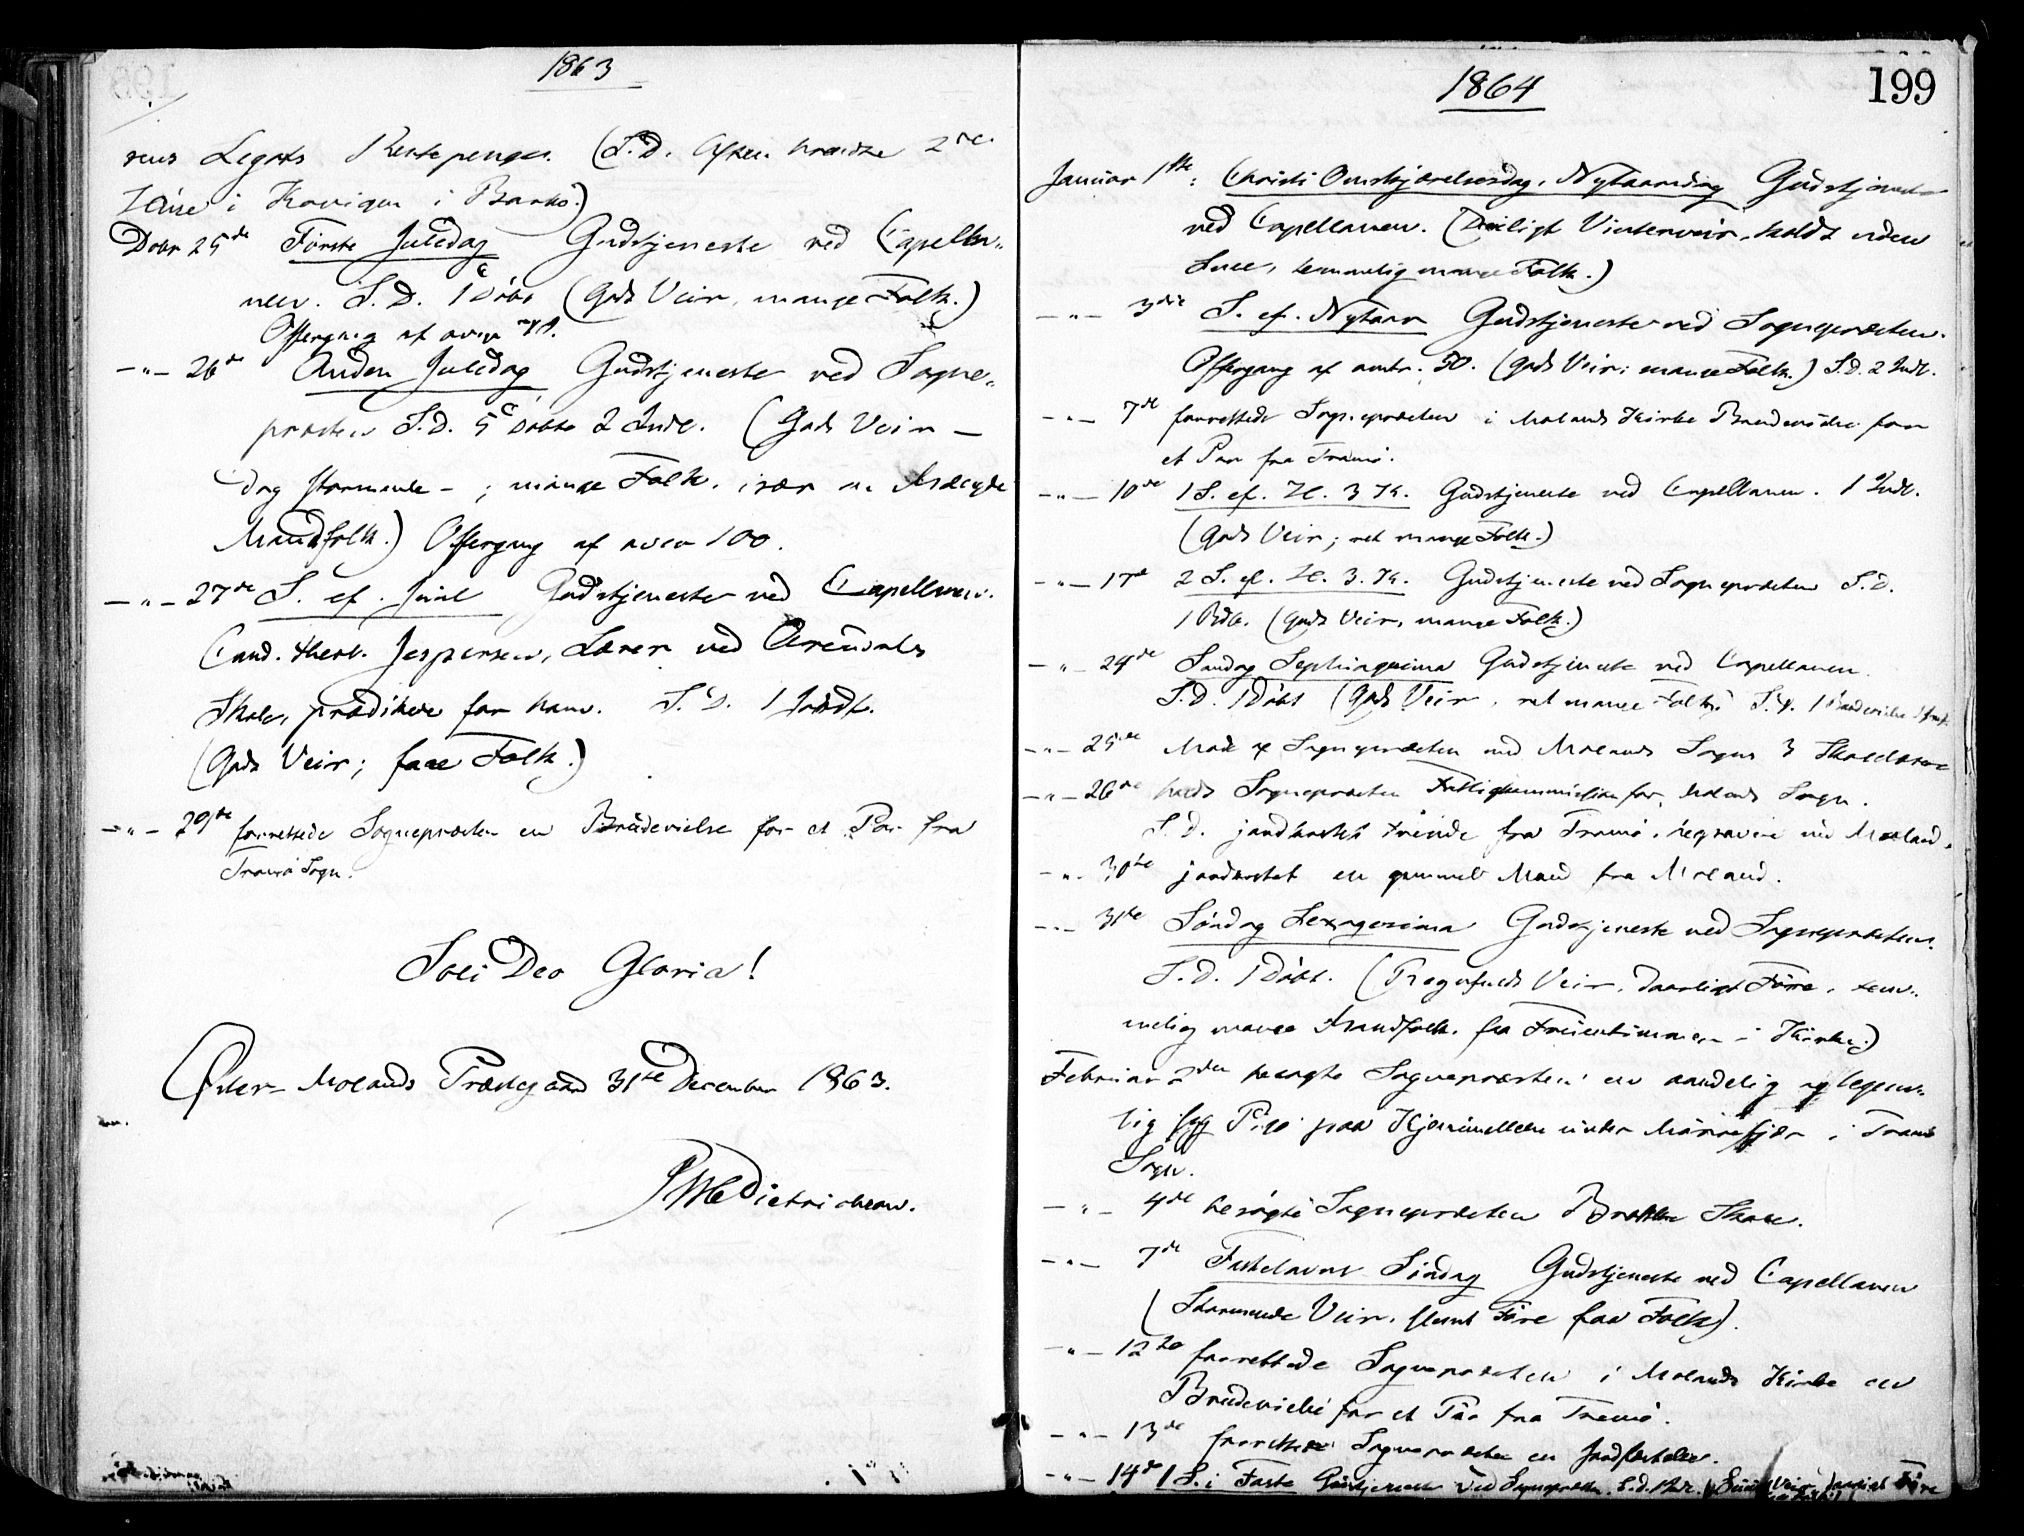 1863
Legats Rentepenge. (S.D.
i Barbo.)
Dcbr 25de Første Juledag Gudstjeneste ved Capella-
nen. S.D. 1 Døbt (Godt Veir, mange Folk.)
Offergang af over
–"– 26de Anden Juledag Gudstjeneste ved Sogne-
præsten S.D. 5 Døbte 2 Indl. (Godt Veir –
dog stormende – ; mange Folk, især
Mandfolk.) Offergang af over 100.
–"– 27de S. ef. Juul Gudstjeneste ved Capellanen.
Cand. theol. Jespersen, Lærer ved Arendals
Skole, prædikede for ham. S.D. 1 Indl.
(Godt Veir; faae Folk.)
–"– 29de forrettede Sognepræsten en Brudevielse for et Par fra
Tromø Sogn.
Soli Deo Gloria!
Øster-Molands Præstegaard 31te December 1863.
Dietrichson.
1864
199
Januar 1ste: Christi Omskjærelsesdag, Nytaarsdag Gudstjeneste
ved Capellanen. (Deiligt Vinterveir, koldt uden
Snee, temmelig mange Folk.)
–"– 3die S. ef. Nytaar Gudstjeneste ved Sognepræsten.
Offergang af omtr. 50. (Godt Veir; mange Folk.) S.D. 2 Indl.
–"– 7de forrettede Sognepræsten i Molands Kirke Brudevielse for
et Par fra Tromø.
–"– 10de 1 S. ef. H. 3 K. Gudstjeneste ved Capellanen. 1 Indl.
(Godt Veir; ret mange Folk.)
–"– 17de 2 S. ef. H. 3. K. Gudstjeneste ved Sognepræsten S.D.
1 Døbt. (Godt Veir, mange Folk.)
–"– 24de Søndag Septuagesima Gudstjeneste ved Capellanen.
S.D. 1 Døbt (Godt Veir, ret mange Folk) S.D. 1 Brudevielse
–"– 25de Møde af Sognepræsten med Molands Sogns 3 Skolelærere
–"– 26de holdt Sognepræsten Fattigkommission for Molands Sogn.
S.D. jordkastet tvende fra Tromø, begravne ved Moland.
–"– 30te jordkastet en gammel Mand fra Moland.
–"– 31te Søndag Sexagesima Gudstjeneste ved Sognepræsten.
S.D. 1 Døbt. (Regnfuldt Veir, daarligt Føre, tem-
melig mange Mandfolk, faa Fruentimmer i Kirke.)
Februar 2den besøgte Sognepræsten en aandelig og legem-
lig syg Pige paa under i Tromø
Sogn.
–"– 4de besøgte Sognepræsten Brække Skole.
–"– 7de Fastelavns Søndag Gudstjeneste ved Capellanen
(Stormende Veir, slemt Føre faa Folk).
–"– 12te forrettede Sognepræsten i Molands Kirke en
Brudevielse for et Par fra Tromø.
–"– 13de forrettede Sognepræsten en Jordfæstelse.
–"– 14de 1 S. i Faste Gudstjeneste ved Sognepræsten. S.D. Veir, daarligt Føre